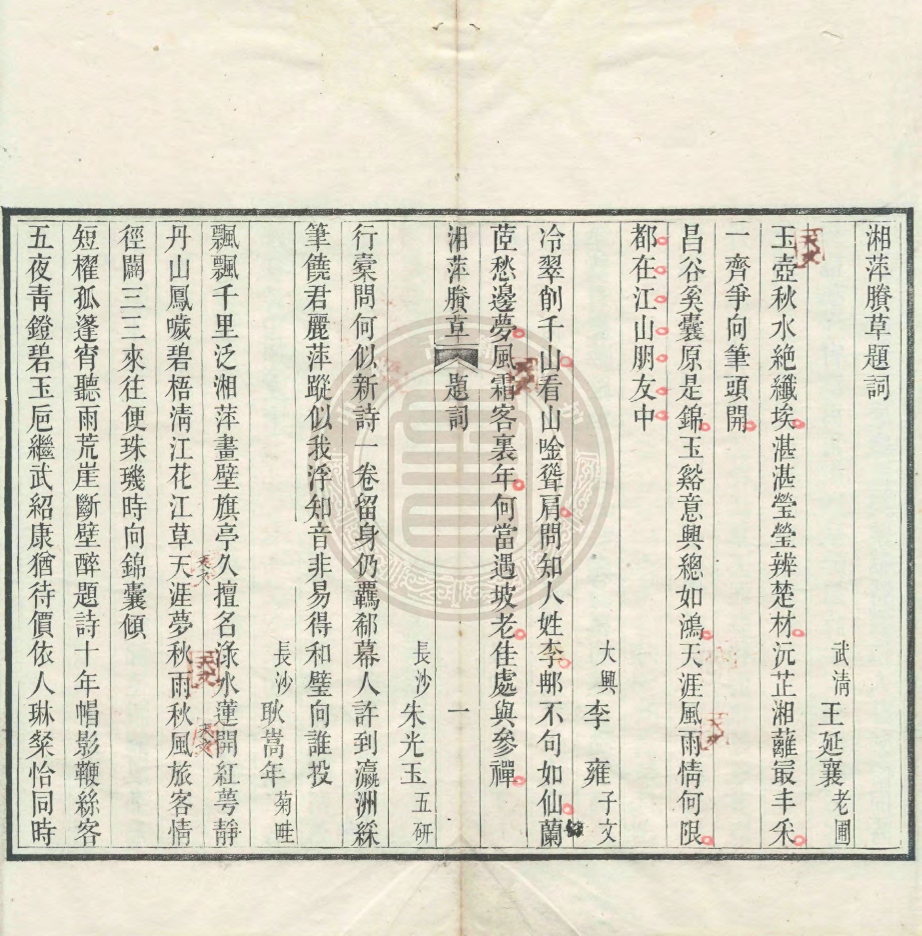 湘萍賸草題詞
武清王延襄老圃
玉壺秋水絶纖埃湛湛瑩瑩辨楚材沅芷湘蘺最丰采
一齊爭向筆頭開
昌谷奚囊原是錦玉谿意興總如鴻天涯風雨情何限
都在江山朋友中
大興李雍子文
冷翠削千山看山唫聳肩問知人姓李郍不句如仙蘭
茝愁邊夢風霜客裏年何當遇坡老隹處與參禪
湘萍賸草 題詞 一
長沙朱光玉五研
行橐問何似新詩一卷留身仍羈郗幕人許到瀛洲綵
筆饒君麗萍蹤似我浮知音非易得和璧向誰投
長沙耿嵩年菊畦
飄飄千里泛湘萍畫壁旗亭久擅名淥水蓮開紅萼靜
丹山鳳噦碧梧淸江花江草天涯夢秋雨秋風旅客情
徑闢三三來往便珠璣時向錦囊傾
短櫂孤蓬宵聽雨荒崖斷壁醉題詩十年帽影鞭絲客
五夜青鐙碧玉巵繼武紹康猶待價依人琳粲恰同時